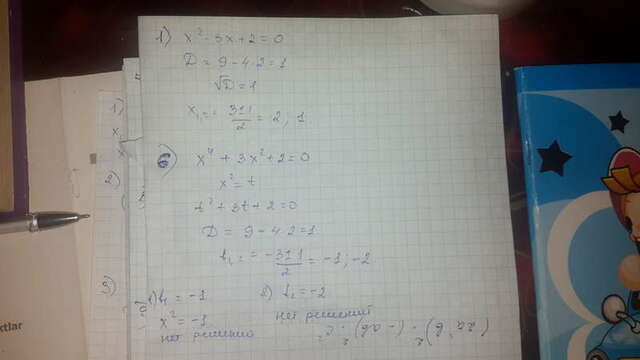 1) x² - 3x + 2 = 0
D = 9 - 4·2 = 1
√D = 1
x₁ = 3±1/2 = 2; 1
6) x⁴ + 3x² + 2 = 0
x² = t
t² + 3t + 2 = 0
D = 9 - 4·2 = 1
t₁ = -3±1/2 = -1; -2
a) t₁ = -1
x² = -1
нет решений
б) t₂ = -2
нет решений
1)
x
x
2)
3)
ktlar